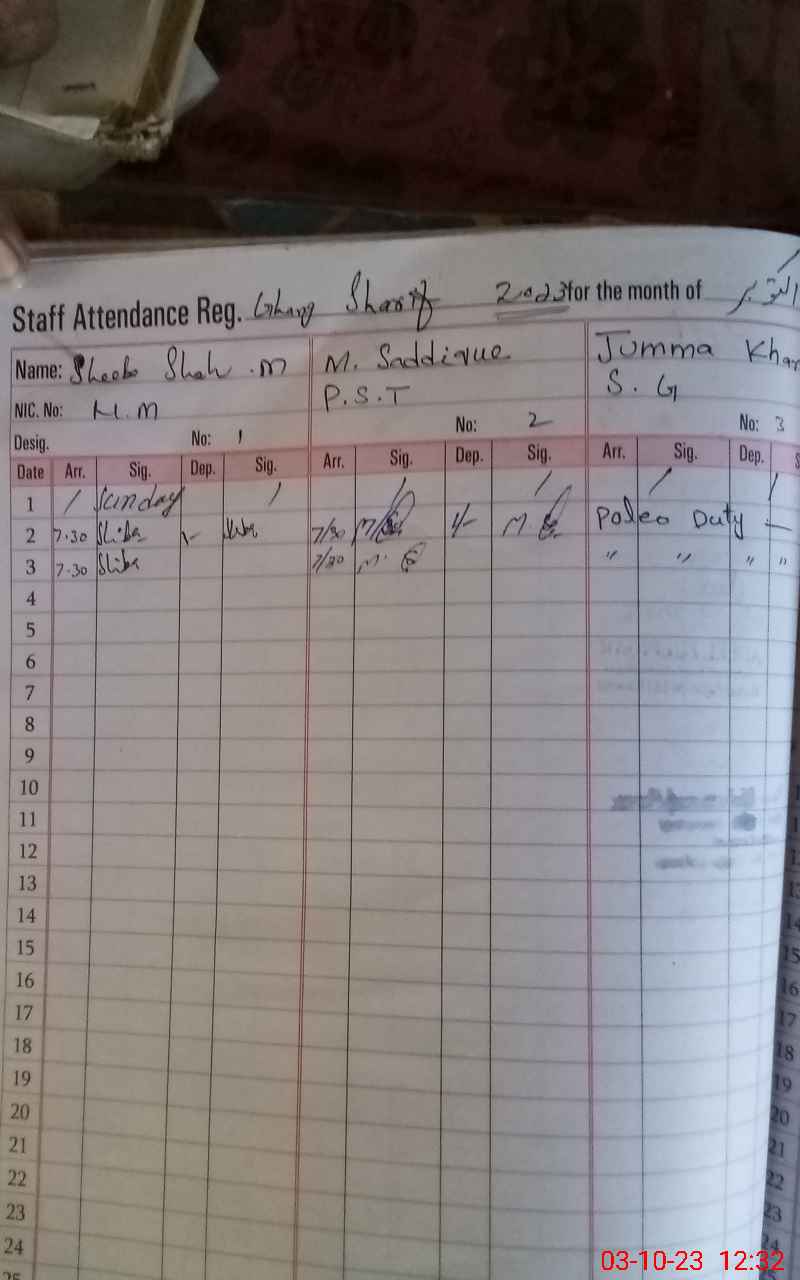 Staff Attendance Reg. Ghang Sharif 2023 for the month of اکتوبر
Name: Sheeba Shah .M M. Saddique Jumma Khan
NIC. No: H.M P.S.T S.G
Desig. No: 1 No: 2 No: 3
Date Arr. Sig. Dep. Sig. Arr. Sig. Dep. Sig. Arr. Sig. Dep. S
1 / Sunday / / / / /
2 7.30 1- 7/30 1/- M Poleo Duty —
3 7.30 7/30 M. " " " "
4
5
6
7
8
9
10
11
12
13
14
15
16
17
18
19
20
21
22
23
24
25
03-10-23 12:32